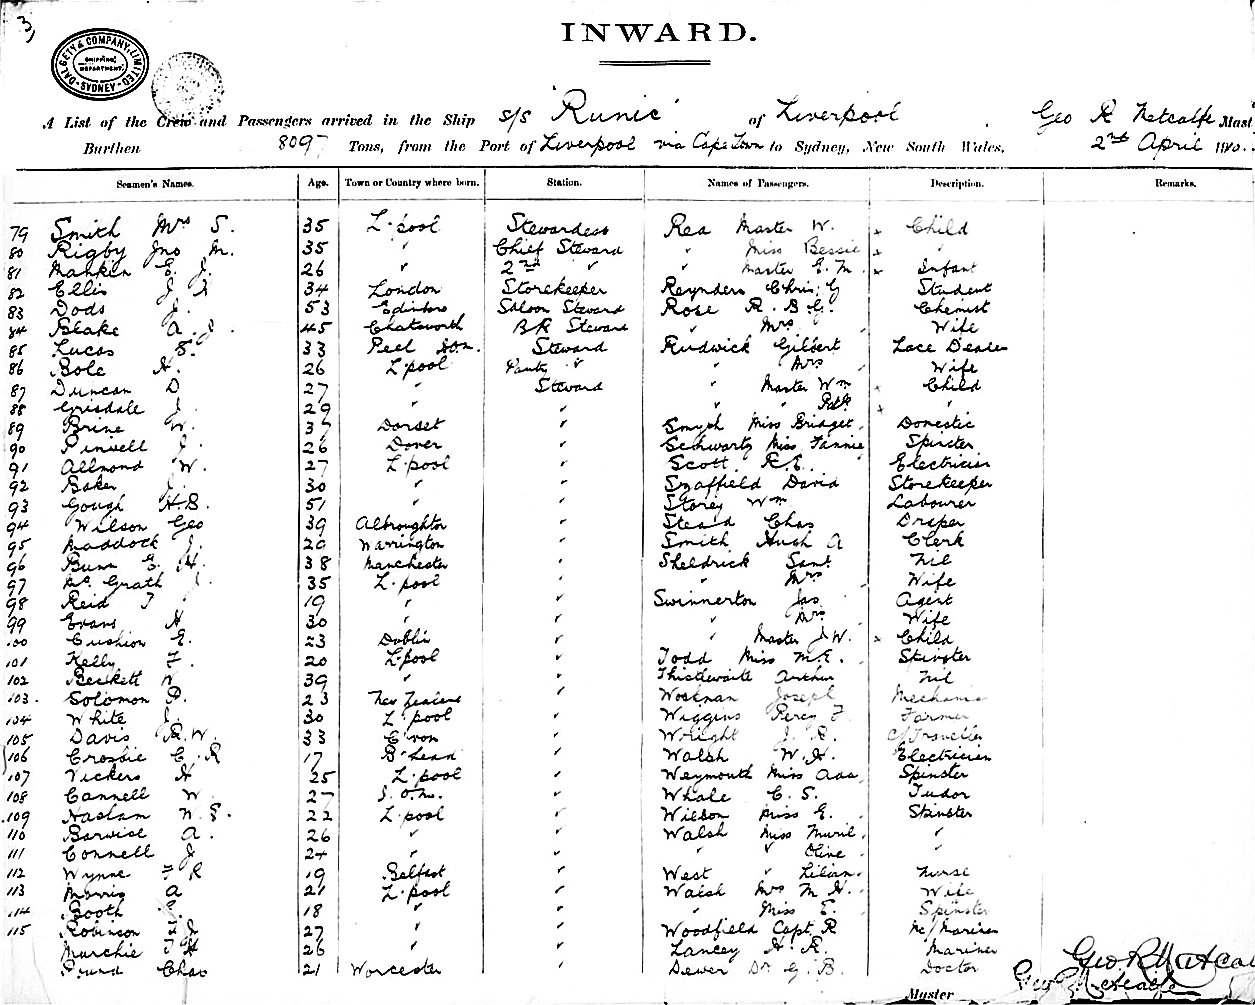 3,
INWARD.
DALGETY & COMPANY, LIMITED SHIPPING DEPARTMENT. SYDNEY
A List of the Crew and Passengers arrived in the Ship s/s "Runic" of Liverpool . Geo R Metcalfe Mast
Burthen 8097 Tons, from the Port of Liverpool via Cape Town to Sydney, New South Wales, 2nd April
Seamen's Names. Age. Town or Country where born. Station. Names of Passengers. Description. Remarks.
79 Smith Mrs S. 35 L.pool Stewardess Rea Master W. x Child
80 Rigby Jno M. 35 " Chief Steward " Miss Bessie x "
81 Mankin E. J. 26 " 2nd " " Master E. M. x Infant
82 Ellis J 34 London Storekeeper Reynders Chris. G Student
83 Dods J. 53 Edinboro Saloon Steward Rose R. B. G. Chemist
84 Blake A. J. 45 Chatsworth BR Steward " Mrs Wife
85 Lucas S. 33 Peel IOM. Steward Rudwick Gilbert Lace Dealer
86 Bole H. 26 L.pool Pantry " " Mrs Wife
87 Duncan D 27 " Steward " Master Wm x Child
88 Grisdale J. 29 " " " " x "
89 Brine W. 37 Dorset " Smyth Miss Bridget. Domestic
90 Pinwell J. 26 Dover " Schwartz Miss Fannie Spinster
91 Allmond W. 27 L.pool " Scott. R.E. Electrician
92 Baker J. 30 " " David Storekeeper
93 Gough H.B. 51 " " Storey Wm Labourer
94 Wilson Geo 39 Albroughton " Stead Chas Draper
95 Maddock J. 20 Warrington " Smith Hugh A Clerk
96 Bunn E. H. 38 Manchester " Sheldrick Saml Nil
97 McGrath J. 35 L.pool " " Mrs Wife
98 Reid T 19 " " Swinnerton Jas Agent
99 Evans H 30 " " " Mrs Wife
100 Cushion E. 23 Dublin " " Master J W. x Child
101 Kelly F. 20 L.pool " Todd Miss M.E. Spinster
102 Beckett W 39 " " Thistlewaite Arthur Nil
103. Solomon P. 23 New Zealand " Joseph Mechanic
104 White J. 30 L.pool " Wiggins Percy F. Farmer
105 Davis R.W. 33 " Wright J. R. C/Traveller
106 Crosbie C. R 17 B'head " Walsh W. H. Electrician
107 Vickers H 25 L.pool " Weymouth Miss Ada Spinster
108 Cannell W. 27 I.O.M. " Whale C. S. Tudor
109 Haslam W. S. 22 L.pool " Wilson Miss E. Spinster
110 Barwise A. 26 " " Walsh Miss Muriel. "
111 Connell J 24 " " " " Olive. "
112 Wynne F R 19 Belfast " West " Lilian. Nurse
113 Morris A 21 L.pool " Walsh Mrs M H. Wife
114 Booth 18 " " " Miss E. Spinster
115 Robinson 27 " " Woodfield Capt. R M/Mariner
Murchie J H 26 " " Lancey H. R. Mariner
Pound Chas 21 Worcester " Dewer Dr G. B. Doctor
Geo R Metcalfe
Geo R Metcalfe
Master